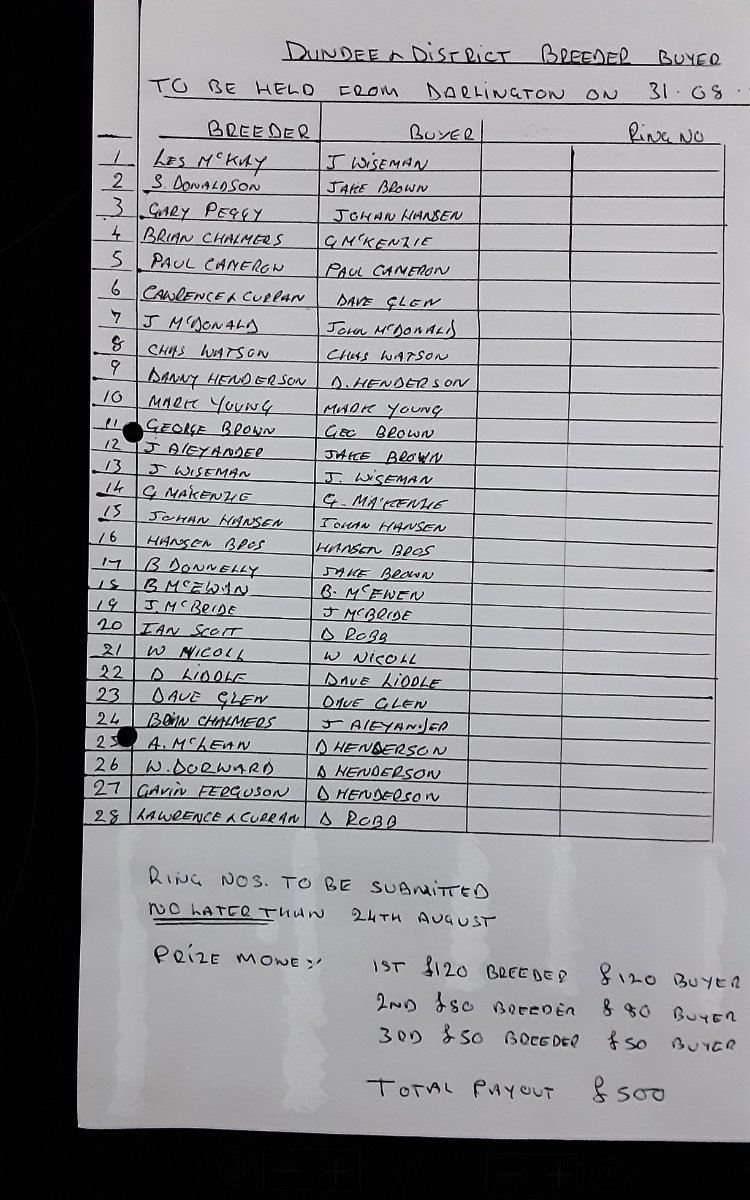 DUNDEE & DISTRICT BREEDER BUYER
TO BE HELD FROM DARLINGTON ON 31.08.
BREEDER BUYER RING NO
1 LES McKAY J WISEMAN
2 S. DONALDSON JAKE BROWN
3 GARY PEGGY JOHAN HANSEN
4 BRIAN CHALMERS G McKENZIE
5 PAUL CAMERON PAUL CAMERON
6 LAWRENCE & CURRAN DAVE GLEN
7 J McDONALD JOHN McDONALD
8 CHAS WATSON CHAS WATSON
9 DANNY HENDERSON D. HENDERSON
10 MARK YOUNG MARK YOUNG
11 GEORGE BROWN GEO BROWN
12 J ALEXANDER JAKE BROWN
13 J WISEMAN J. WISEMAN
14 G MAKENZIE G. MAKENZIE
15 JOHAN HANSEN JOHAN HANSEN
16 HANSEN BROS HANSEN BROS
17 B DONNELLY JAKE BROWN
18 B McEWAN B. McEWEN
19 J. McBRIDE J McBRIDE
20 IAN SCOTT D ROBB
21 W NICOLL W NICOLL
22 D LIDDLE DAVE LIDDLE
23 DAVE GLEN DAVE GLEN
24 BRIAN CHALMERS J ALEXANDER
25 A. McLEAN D HENDERSON
26 W. DORWARD D HENDERSON
27 GAVIN FERGUSON D HENDERSON
28 LAWRENCE & CURRAN D ROBB
RING NOS. TO BE SUBMITTED
NO LATER THAN 24TH AUGUST
PRIZE MONEY:- 1ST £120 BREEDER £120 BUYER
2ND £80 BREEDER £80 BUYER
3RD £50 BREEDER £50 BUYER
TOTAL PAYOUT £500